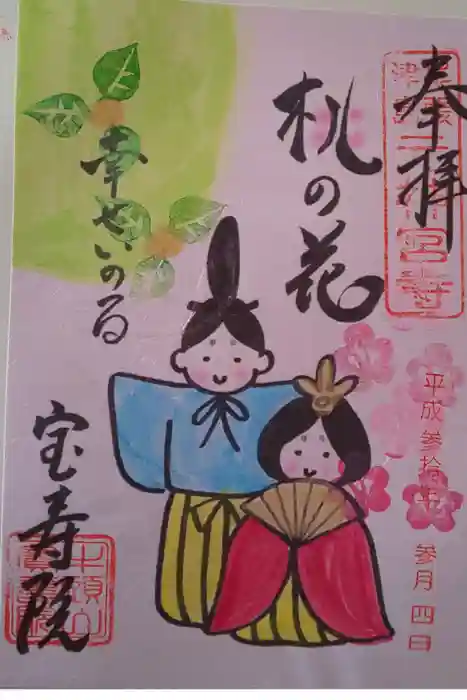 奉拝
桃の花
幸せいのる
宝寿院
平成参拾壱年
参月四日
牛頭山